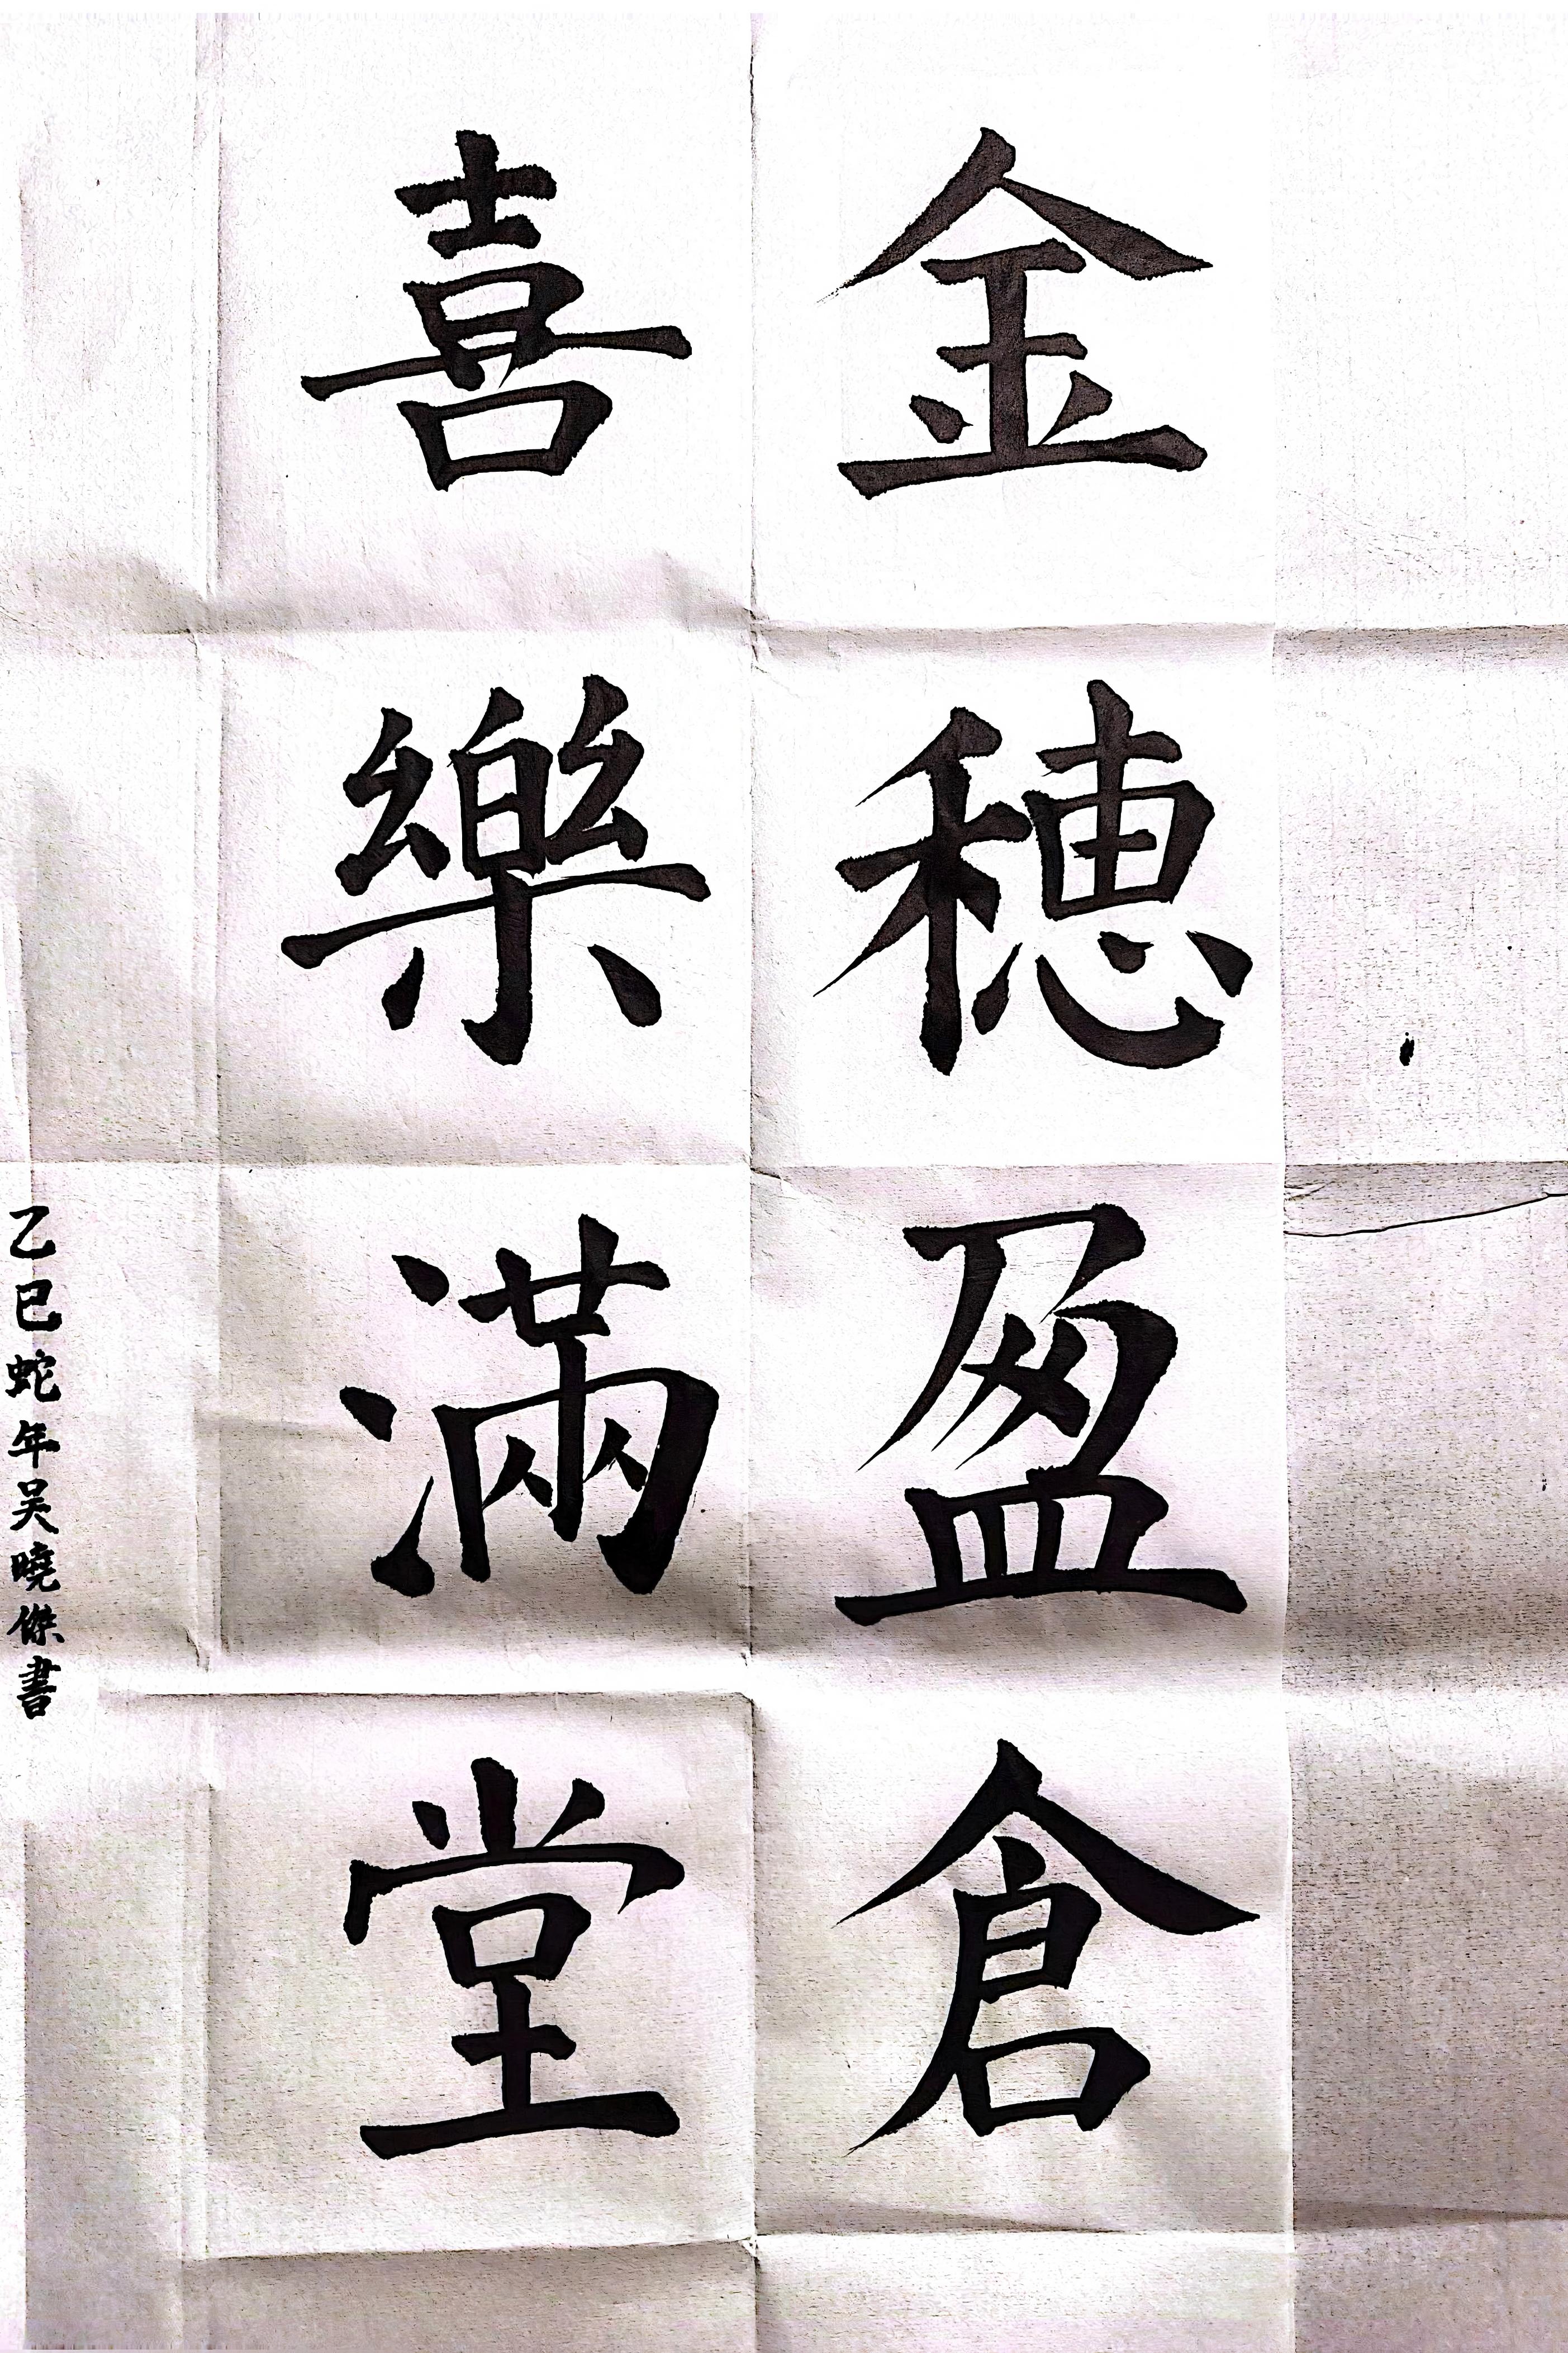 金穗盈倉
喜樂滿堂
乙巳蛇年吴曉傑書